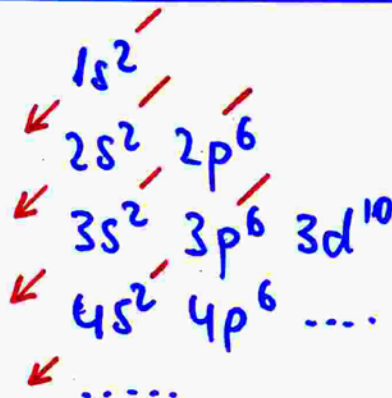 1s²
2s² 2p⁶
3s² 3p⁶ 3d¹⁰
4s² 4p⁶ ....
.....